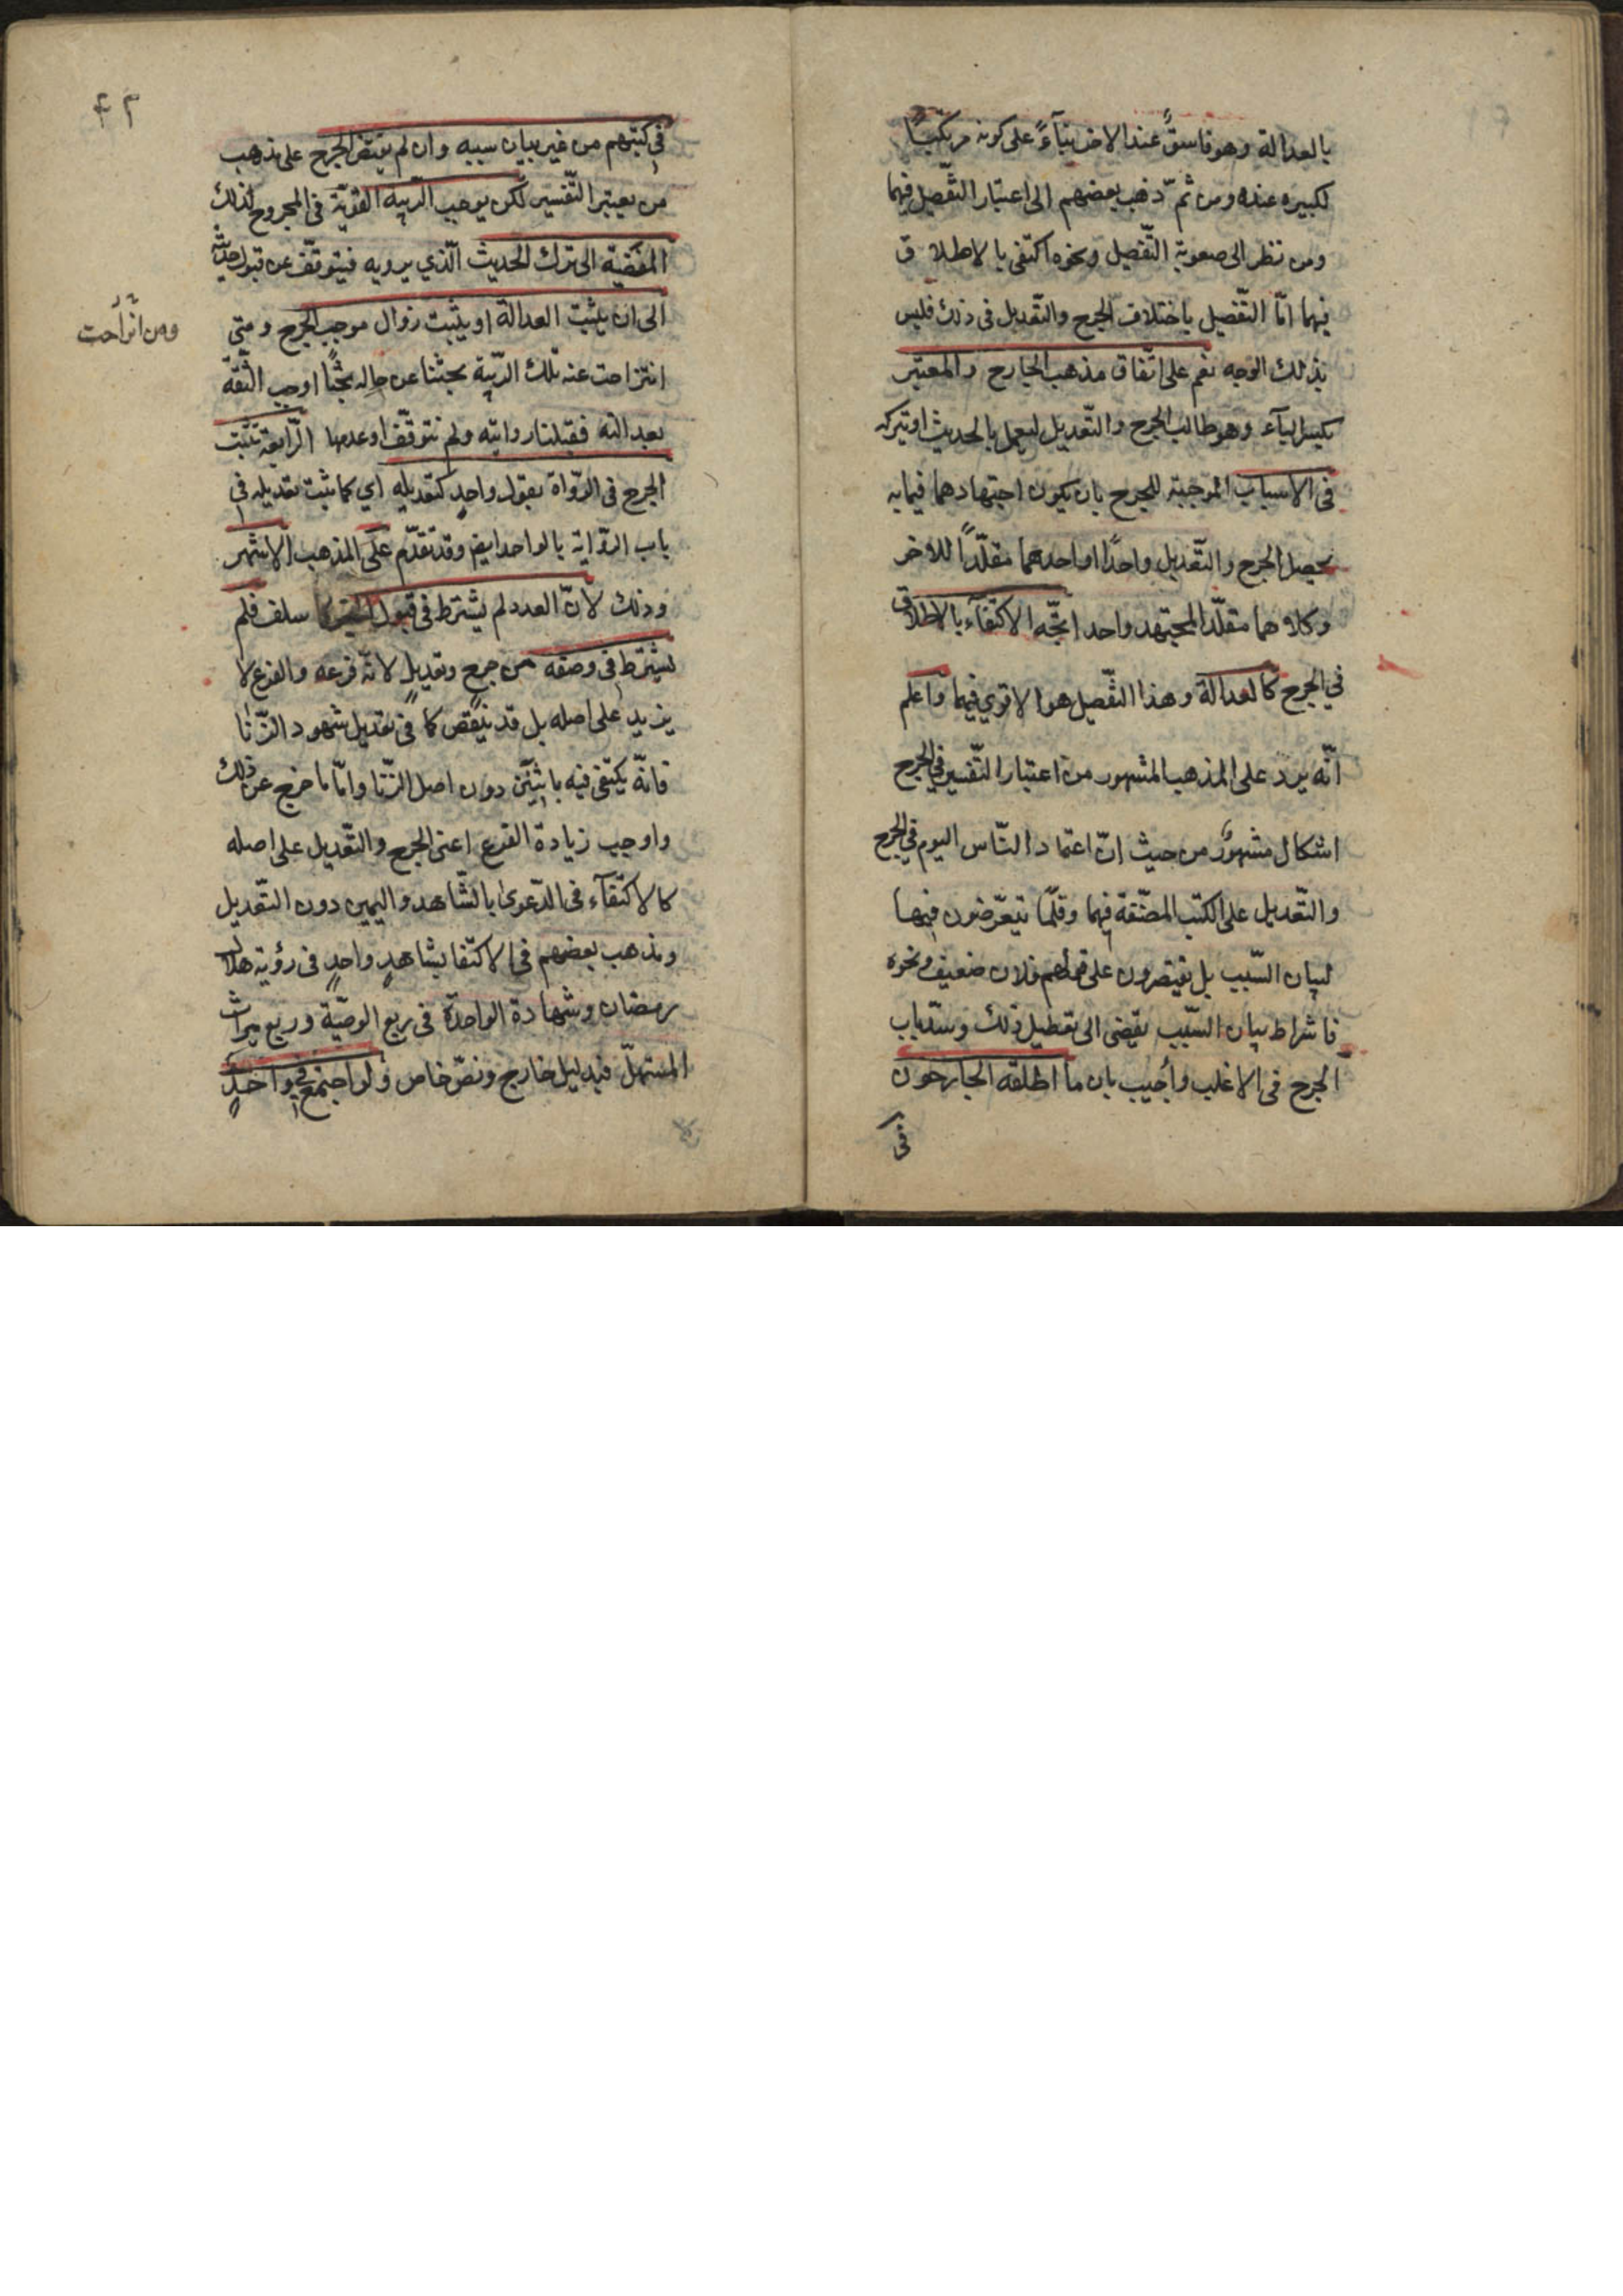 بالعدالة وهو فاسقٌ عند الاخر بنآءً على كونه مرتكبًا
لكبيره عنده ومن ثمّ ذهب بعضهم الى اعتبار التّفصيل فيهما
ومن نظر الى صعوبة التّفصيل ونحوه اكتفى بالاطلاق
فيهما امّا التّفصيل باختلاف الجرح والتّعديل فى ذلك فليس
بذلك الوجه نعم على اتّفاق مذهب الجارح والمعتبر
بكسر البآء وهو طالب الجرح والتّعديل ليعمل بالحديث او يتركه
فى الاسباب الموجبة للجرح بان يكون اجتهادهما فيما به
يحصل الجرح والتّعديل واحدًا او احدهما مقلّدًا للاخر
وكلاهما مقلّد المجتهد واحد اتّجه الاكتفآء بالاطلاق
في الجرح كالعدالة وهذا التّفصيل هو الاقوي فيهما واعلم
انّه يرد على المذهب المشهور من اعتبار التّفسير في الجرح
اشكال مشهورٌ من حيث انّ اعتماد النّاس اليوم في الجرح
والتّعديل على الكتب المصنّفة فيهما وقلّما يتعرّضون فيها
لبيان السّبب بل يقتصرون على قولهم فلان ضعيف ونحوه
فاشراط بيان السّبب يفضى الى تعطيل ذلك وسدّ باب
الجرح فى الاغلب وأجيب بان ما اطلقه الجارحون
فى
٤٢
فى كتبهم من غير بيان سببه وان لم يقتض الجرح على مذهب
من يعتبر التّفسير لكن يوجب الرّيبة القويّة فى المجروح لذلك
المفضية الى ترك الحديث الّذي يرويه فيتوقّف عن قبول حديثه
الى ان يثبت العدالة او يثبت زوال موجب الجرح ومتى
انزاحت عنه تلك الرّيبة بحثنا عن حاله بحثًا اوجب الثّقة
بعدالته فقبلنا روايته ولم نتوقّف او عدمها الرّابعة تثبت
الجرح فى الرّواة بقول واحدٍ كتعديله اي كما يثبت تعديله في
باب الرّواية بالواحد ايضا وقد تقدّم على المذهب الاشهر
وذلك لانّ العدد لم يشترط فى قبول الخبر كما سلف فلم
يشترط فى وصفه من جرحٍ وتعديلٍ لانّه فرعه والفرع لا
يزيد على اصله بل قد ينقص كما فى تعديل شهود الزّنا
فانّه يكتفى فيه باثنين دون اصل الزّنا وامّا ما خرج عن ذلك
واوجب زيادة الفرع اعنى الجرح والتّعديل على اصله
كالاكتفآء فى الدّعوى بالشّاهد واليمين دون التّعديل
ومذهب بعضهم فى الاكتفا بشاهدٍ واحدٍ فى رؤية هلال
رمضان وشهادة الواحدة فى ربع الوصيّة وربع ميراث
المستهلّ فبدليل خارج ونصّ خاص ولو اجتمع في واحدٍ
ومن انزاحت